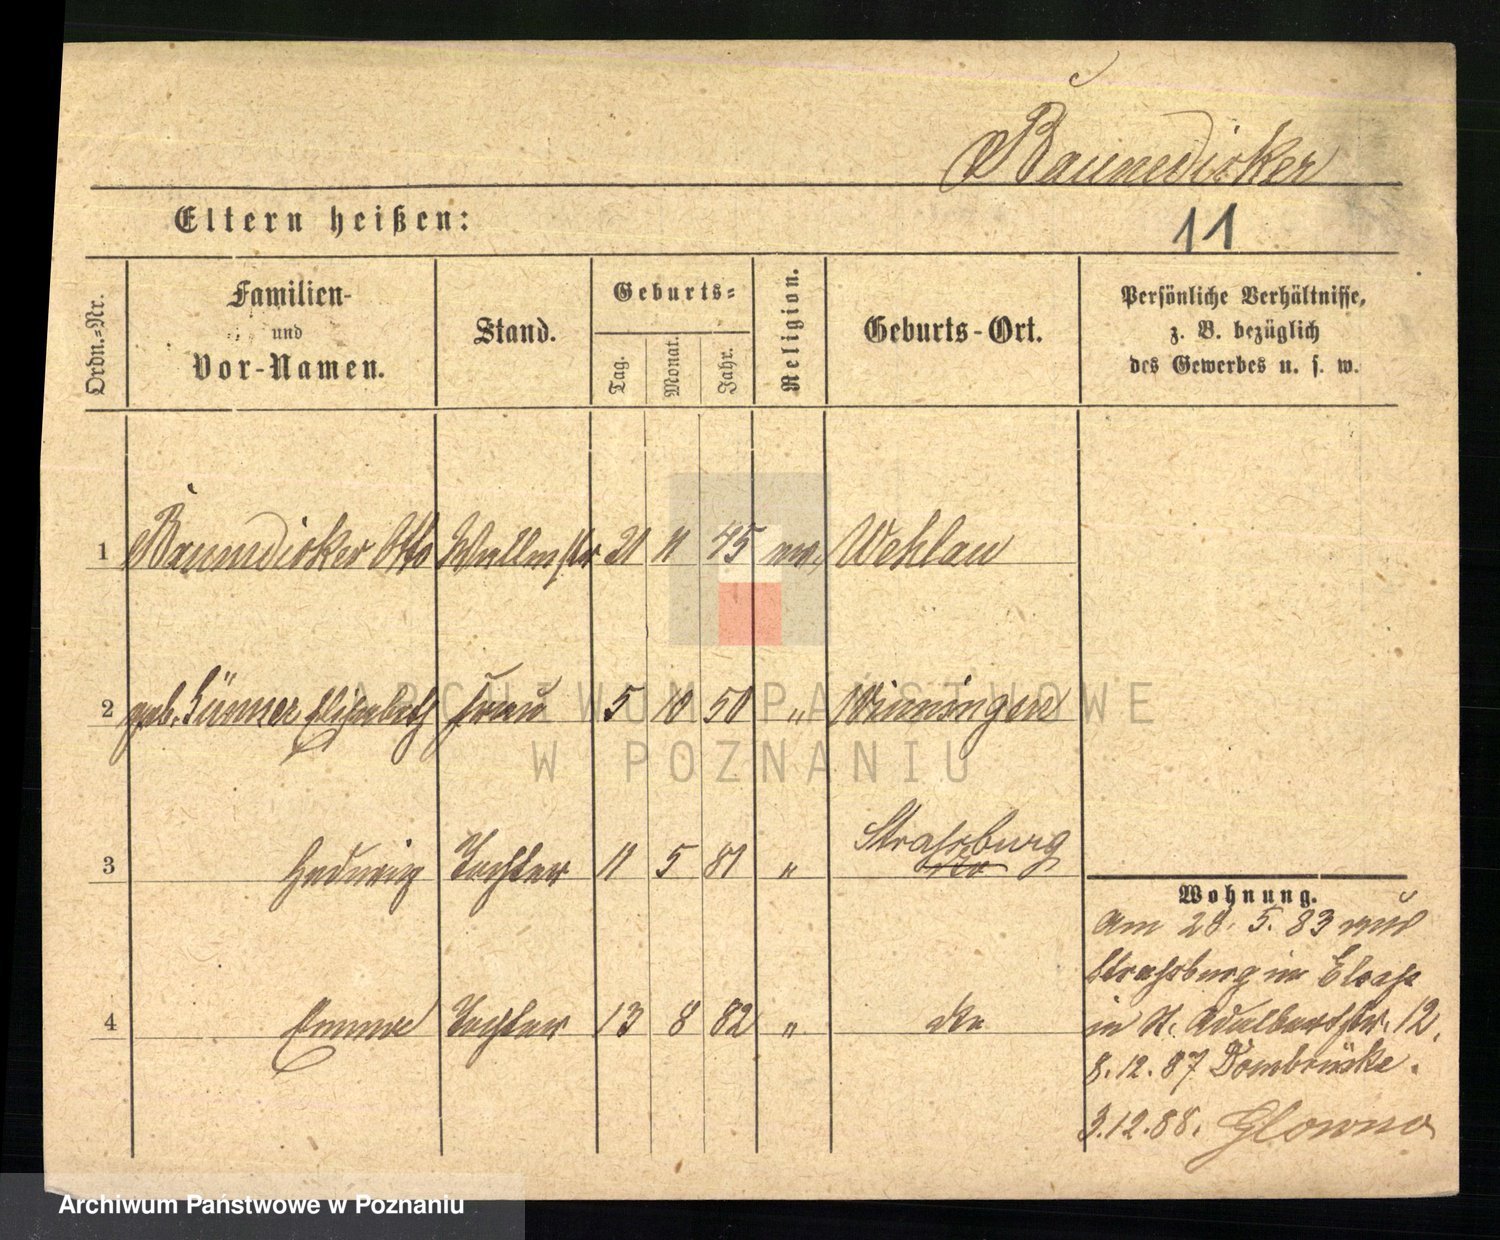 Baunedicker
Eltern heißen:
11
Ordn.-Nr.
Familien-
und
Vor-Namen.
Stand.
Geburts-
Tag.
Monat.
Jahr.
Religion.
Geburts-Ort.
Persönliche Verhältnisse,
z. B. bezüglich
des Gewerbes u. s. w.
1 Baunedicker Otto Wallmstr 21 11 45 ev. Wehlau
2 geb. Elisabeth Frau 5 10 50 " Winningen
3 Hedwig Tochter 11 5 81 " Strassburg
4 Emma Tochter 13 8 82 " dto
Wohnung.
Am 28. 5. 83 aus
Strassburg in Elsass
in St. Adalbertstr. 12.
8. 12. 87 Dombrücke.
3. 12. 88. Glowno
ARCHIWUM PAŃSTWOWE
W POZNANIU
Archiwum Państwowe w Poznaniu